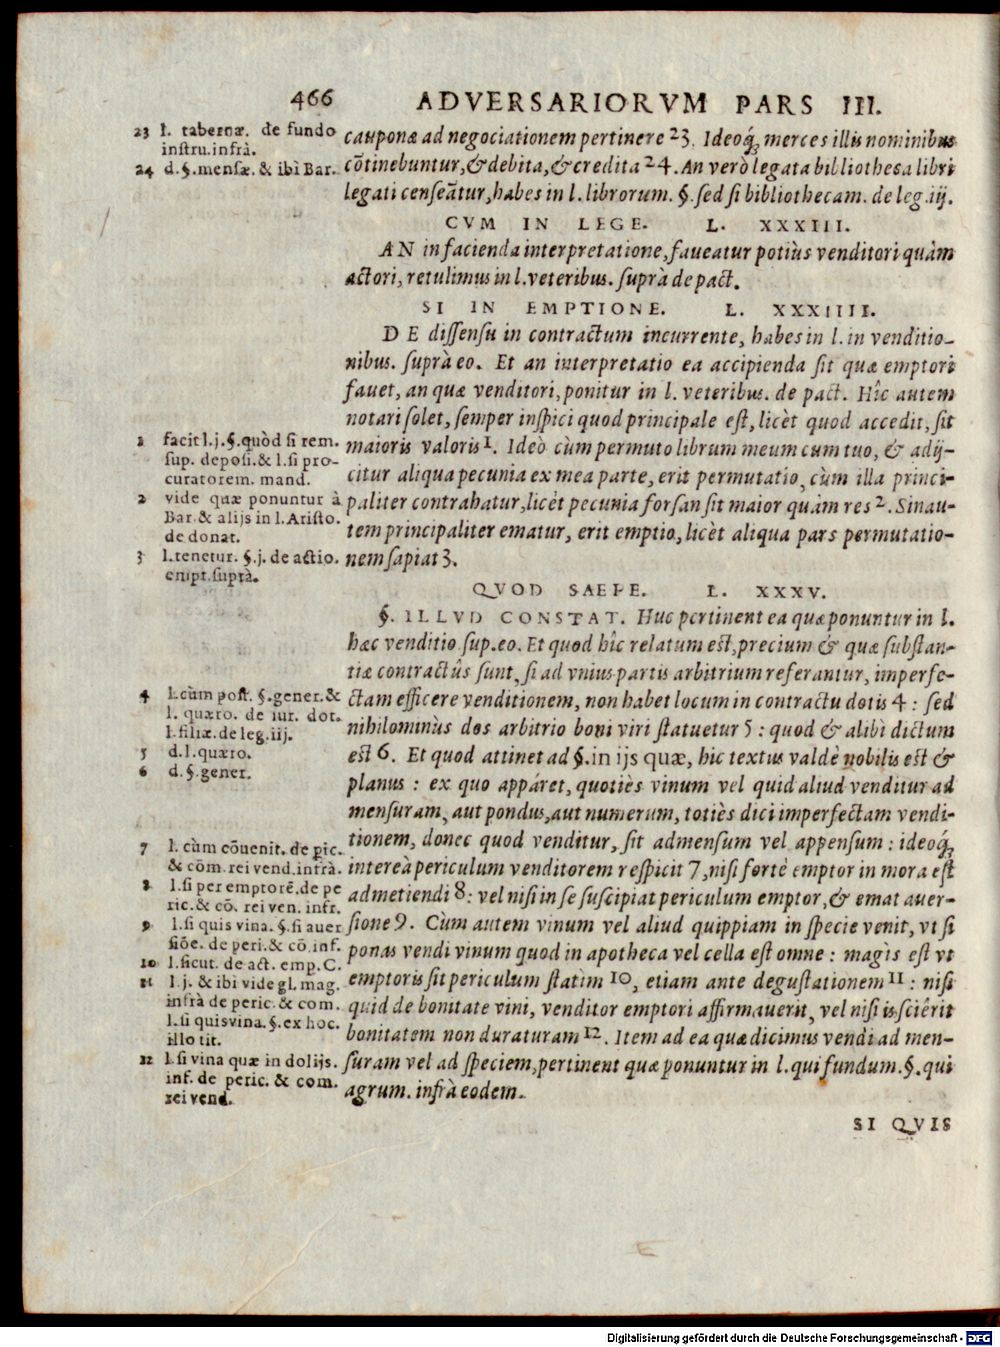 466 ADVERSARIORVM PARS III.
23 l. tabernæ. de fundo
instru. infrà.
24 d. §. mensæ. & ibi Bar.
cauponæ ad negociationem pertinere 23. Ideoq́; merces illis nominibus
cõtinebuntur, & debita, & credita 24. An verò legata bibliotheca libri
legati censeãtur, habes in l. librorum. §. sed si bibliothecam. de leg. iij.
CVM IN LEGE. L. XXXIII.
AN in facienda interpretatione, faueatur potiùs venditori quàm
actori, retulimus in l. veteribus. suprà de pact.
SI IN EMPTIONE. L. XXXIIII.
DE dissensu in contractum incurrente, habes in l. in venditio-
nibus. suprà eo. Et an interpretatio ea accipienda sit quæ emptori
fauet, an quæ venditori, ponitur in l. veteribus. de pact. Hîc autem
notari solet, semper inspici quod principale est, licèt quod accedit, sit
maioris valoris 1. Ideò cùm permuto librum meum cum tuo, & adij-
citur aliqua pecunia ex mea parte, erit permutatio, cùm illa princi-
paliter contrahatur, licèt pecunia forsan sit maior quàm res 2. Sinau-
tem principaliter ematur, erit emptio, licèt aliqua pars permutatio-
nem sapiat 3.
1 facit l. j. §. quòd si rem.
sup. deposi. & l. si pro-
curatorem. mand.
2 vide quæ ponuntur à
Bar. & alijs in l. Aristo.
de donat.
3 l. tenetur. §. j. de actio.
empt. suprà.
QVOD SAEPE. L. XXXV.
§. ILLVD CONSTAT. Huc pertinent ea quæ ponuntur in l.
hæc venditio. sup. eo. Et quod hîc relatum est, precium & quæ substan-
tiæ contractûs sunt, si ad vnius partis arbitrium referantur, imperfe-
ctam efficere venditionem, non habet locum in contractu dotis 4 : sed
nihilominùs dos arbitrio boni viri statuetur 5 : quod & alibì dictum
est 6. Et quod attinet ad §. in ijs quæ, hic textus valdè nobilis est &
planus : ex quo appáret, quotiès vinum vel quid aliud venditur ad
mensuram, aut pondus, aut numerum, totiès dici imperfectam vendi-
tionem, donec quod venditur, sit admensum vel appensum : ideoq́;
intereà periculum venditorem respicit 7, nisi fortè emptor in mora est
admetiendi 8 : vel nisi in se suscipiat periculum emptor, & emat auer-
sione 9. Cùm autem vinum vel aliud quippiam in specie venit, vt si
ponas vendi vinum quod in apotheca vel cella est omne : magìs est vt
emptoris sit periculum statìm 10, etiam ante degustationem 11 : nisi
quid de bonitate vini, venditor emptori affirmauerit, vel nisi is sciêrit
bonitatem non duraturam 12. Item ad ea quæ dicimus vendi ad men-
suram vel ad speciem, pertinent quæ ponuntur in l. qui fundum. §. qui
agrum. infrà eodem.
4 l. cùm post. §. gener. &
l. quæro. de iur. dot.
l. filiæ. de leg. iij.
5 d. l. quæro.
6 d. §. gener.
7 l. cùm cõuenit. de pic.
& cõm. rei vend. infrà.
8 l. si per emptorẽ. de pe
ric. & cõ. rei ven. infr.
9 l. si quis vina. §. si auer
siõe. de peri. & cõ. inf.
10 l. sicut. de act. emp. C.
11 l. j. & ibi vide gl. mag.
infrà de peric. & com.
l. si quis vina. §. ex hoc.
illo tit.
12 l. si vina quæ in dolijs.
inf. de peric. & com.
rei vend.
SI QVIS
Digitalisierung gefördert durch die Deutsche Forschungsgemeinschaft - DFG